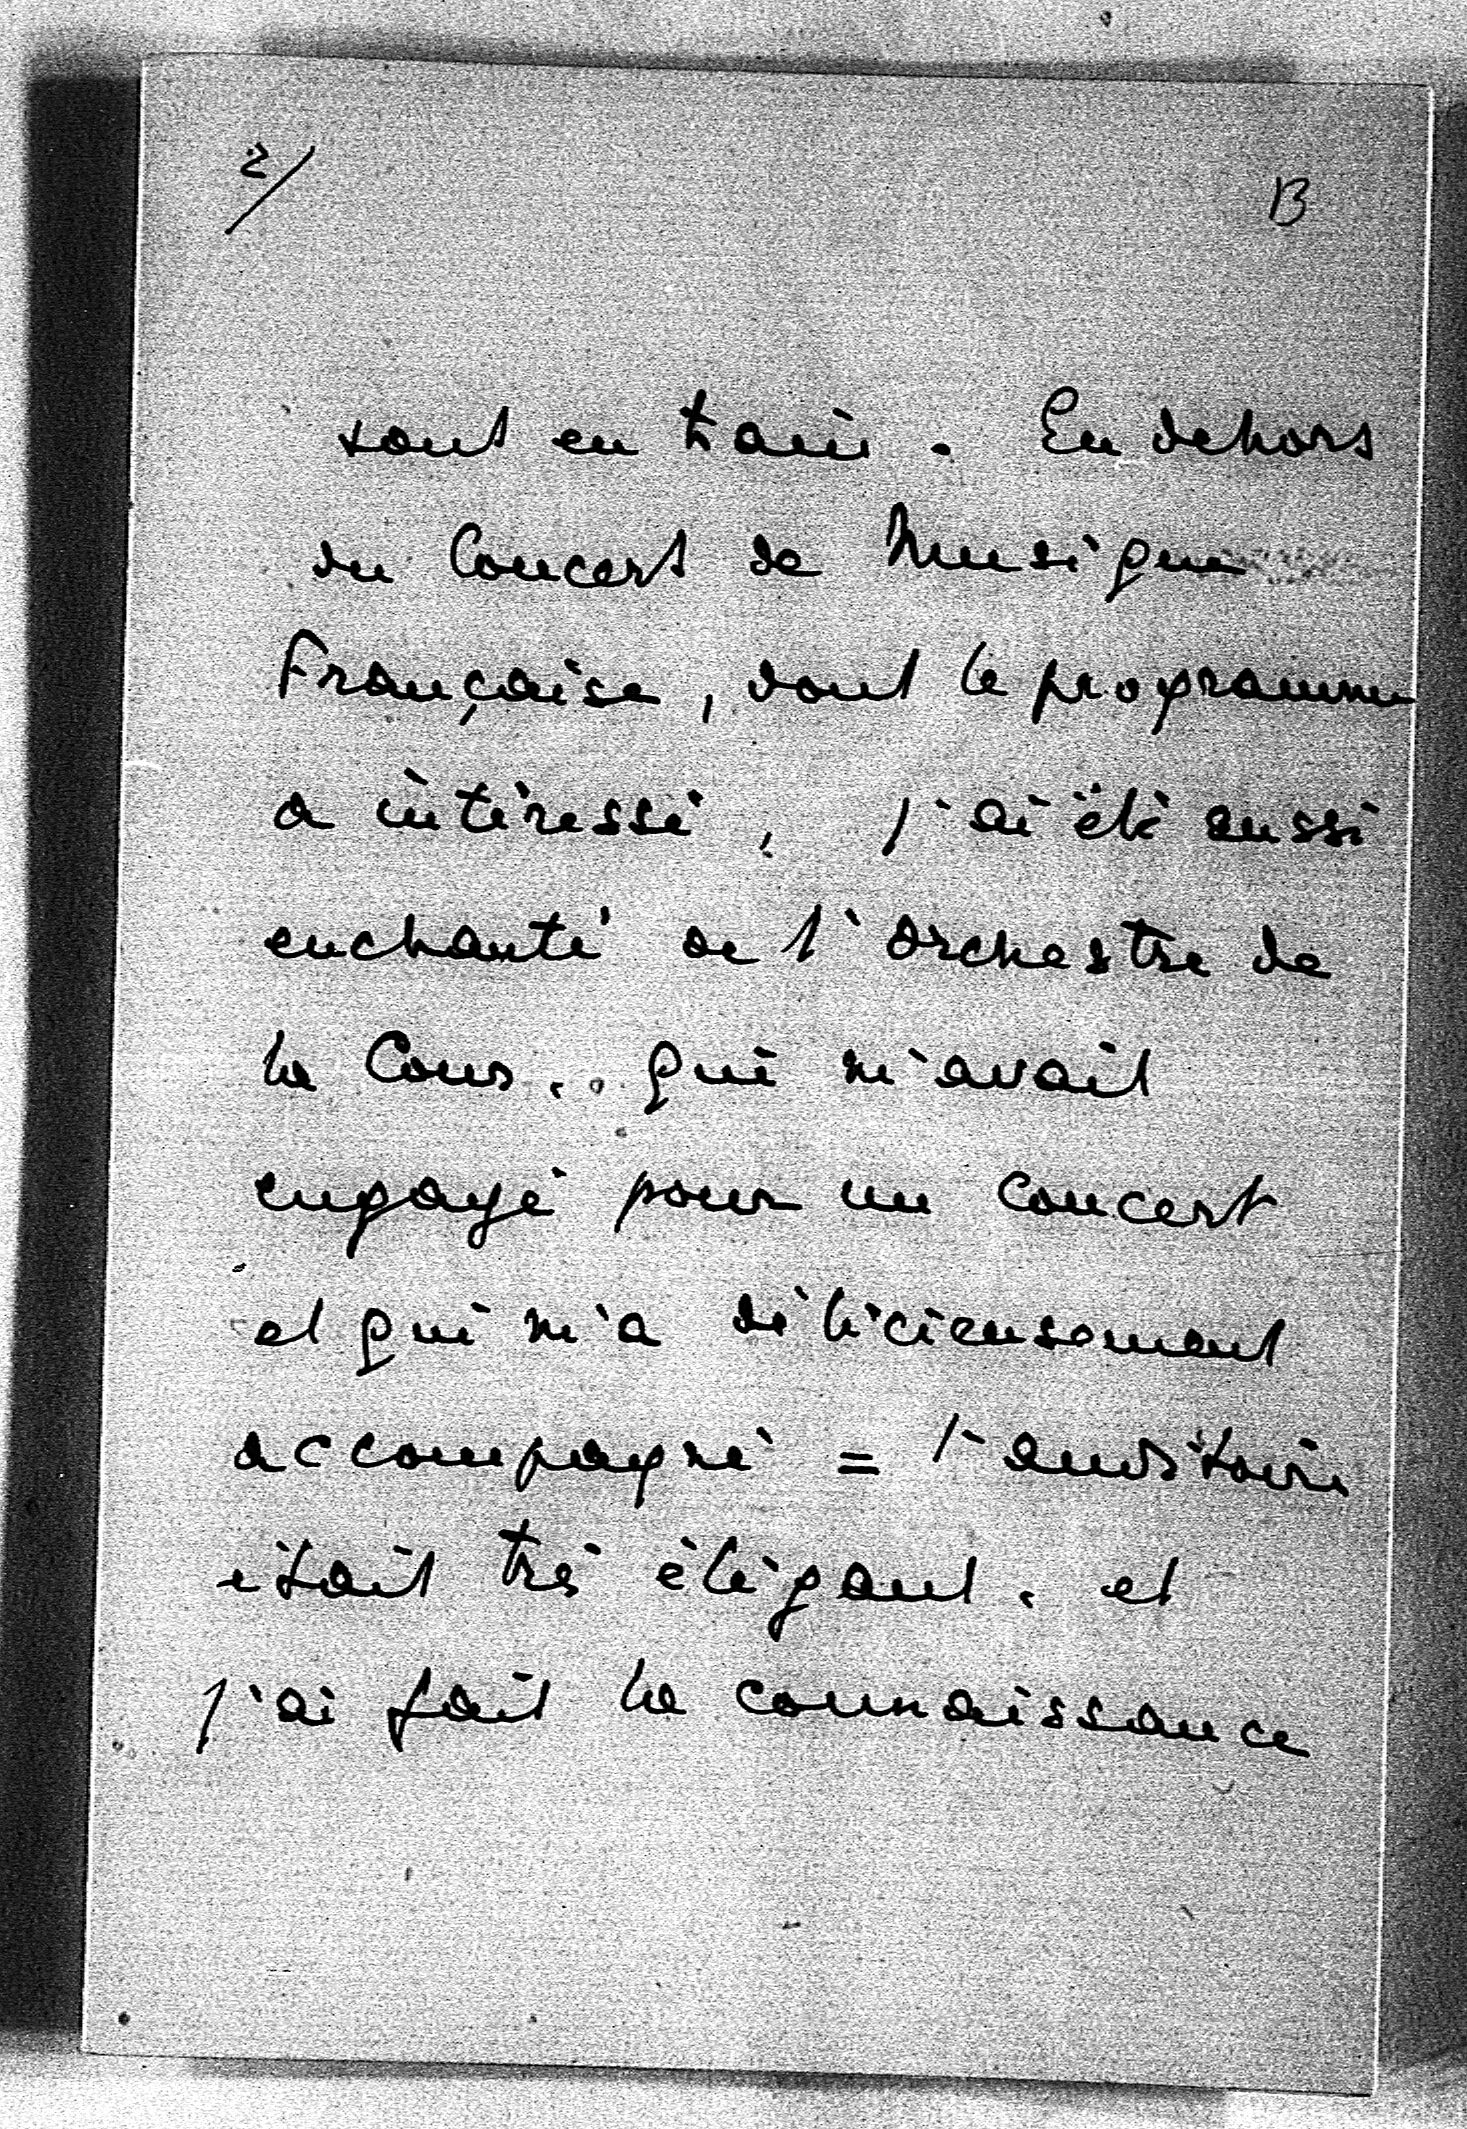 2/
B
sont en train. En dehors
du Concert de Musique
Française, dont le programme
a intéressé, j'ai été aussi
enchanté de l'Orchestre de
la Cour.. qui m'avait
engagé pour un concert
et qui m'a délicieusement
accompagné = l'auditoire
était très élégant, et
j'ai fait la connaissance